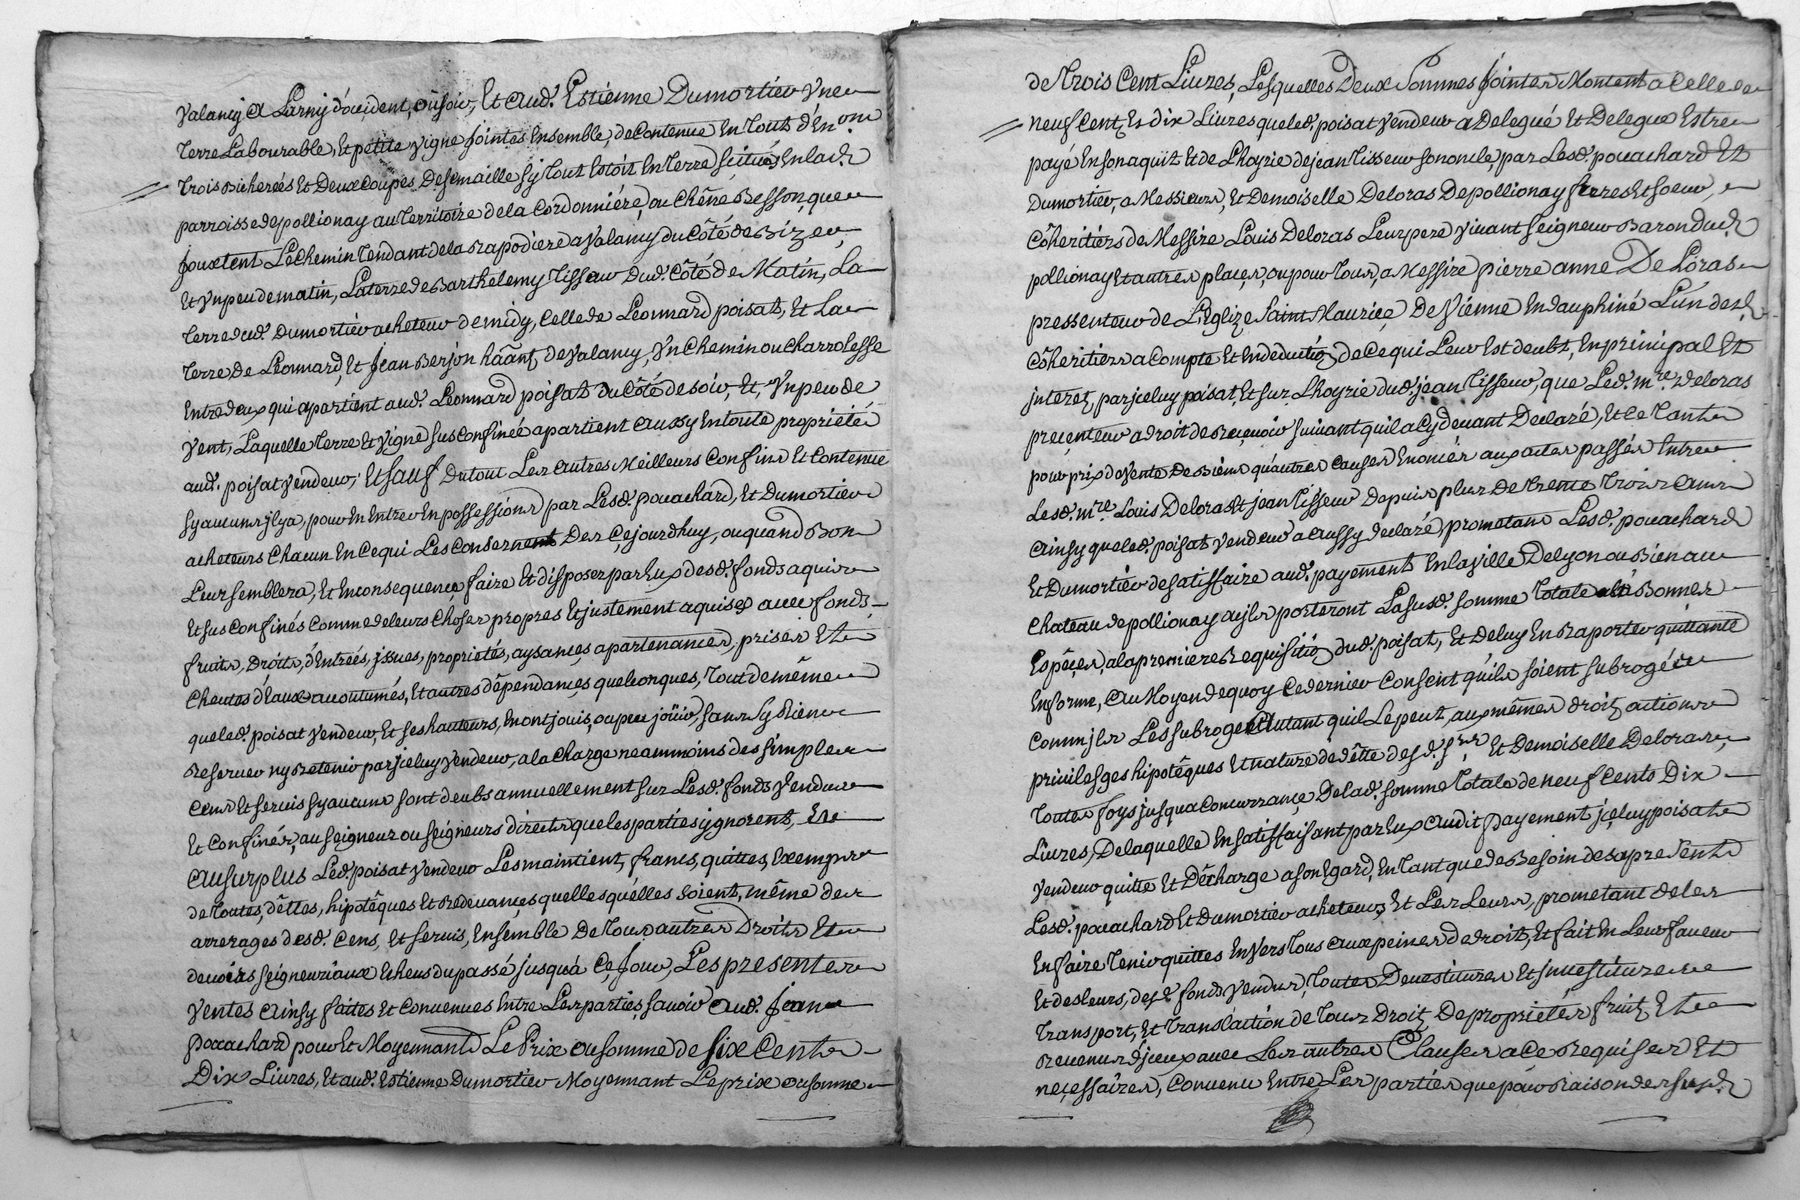 Valancy & Larny d'occident, ou soir, Et aud. Estienne Dumortier Vne
Terre Labourable, Et petite vigne jointes Ensemble, de Contenue En Tout d'En.on
Trois Bicherées Et Deux Coupes De semaille sy Tout Estoit En Terre scituées En lad.
parroisse de pollionay au Territoire de la Cordonniére, ou Chêne Besson, que
jouxtent Le Chemin Tendant de la Rapodiere a Valancy du Côté de Bize,
Et Vn peu de matin, La terre de Barthelemy Tisseur Dud. Côté de Matin, La
Terre dud. Dumortier acheteur de midy, Celle de Leonnard poisat, Et La
Terre de Leonnard, Et Jean Berjon hãant de Valancy, Vn Chemin ou Charrolesse
Entre deux qui apartient aud. Leonnard poisat du Côté de soir, Et, Vn peu de
Vent, Laquelle Terre Et Vigne sus Confinée apartient aussy En toute propriété
aud. poisat Vendeur, Et sauf du tout Les autres Meilleurs Confins Et Contenue
sy aucuns jl y a, pour En Entrer En possessions par Lesd. pouachard, Et Dumortier
acheteurs Chacun En Ce qui Les Consernent Des Ce jourdhuy, ou quand Bon
Leur semblera, Et En Consequence faire Et disposer par Eux desd. fonds aquis
Et sus Confinés Comme de leurs Choses propres Et justement aquises avec fonds
fruits, Droits, d'Entrées, jssues, proprietés, aysances apartenances, prises Et
Cheutes d'Eaux acoutumés, Et autres dépendances quelconques, Tout de même
que led. poisat Vendeur, Et ses hauteurs, En ont jouis, ou peu joüir, sans sy Rien
Reserver ny Retenir par jceluy Vendeur, a la Charge neammoins des simples
Cens Et seruis sy aucuns sont deubs annuellement sur Lesd. fonds Vendus
Et Confinés, au seigneur ou seigneurs directs que les parties ygnorent, Et
Au surplus Led. poisat Vendeur Les maintient, francs, quittes, Exempts
de Toutes, dêttes, hipotêques Et Redeuances quelles qu'elles soient, même des
arrerages desd. Cens, Et seruis, Ensemble De Tous autres Droits Et
deuoirs seigneuriaux Echeus du passé jusqu'à Ce Jour, Les presentes
Ventes Ainsy faittes Et Conuenues Entre Les parties, sauoir aud. Jean
Pouachard pour Et Moyennant Le Prix ou somme de six Cents
Dix Livres, Et aud. Estienne Dumortier Moyennant Le prix ou somme
de Trois Cent Liures, Lesquelles Deux Sommes jointes Montent a Celle de
neuf Cent Et dix Liures que led. poisat Vendeur a Delegué Et Delegue Estre
payé En son aquit Et de L'hoyrie de jean Tisseur son oncle, par Lesd. pouachard Et
Dumortier, a Messieurs, Et Demoiselle Deloras De pollionay freres Et soeur,
Côheritiers de Messire Louis Deloras Leur pere Viuant seigneur Baron dud.
pollionay Et autres places, ou pour Tous, a Messire pierre anne De Loras
pressenteur de L'Eglize Saint Maurice De Vienne En dauphiné L'un desd.
Côheritiers a Compte Et En deduction de Ce qui Leur Est deubt, En principal Et
jnterez, par jceluy poisat, Et sur L'hoyrie dud. jean Tisseur, que Led. m.re deloras
precenteur a droit de Receuoir suiuant qu'il a Cy deuant Declaré, Et Ce Tant
pour prix de Vente De Biens qu'autres Causes Enoncés aux actes passés Entre
Lesd. m.re Louis Deloras Et jean Tisseur depuis plus de Trente Trois ans
Ainsy que led. poisat Vendeur a aussy declaré, prometans Lesd. pouachard
Et Dumortier de satisfaire aud. payement En la ville De Lyon ou Bien au
Chateau de pollionay ou jls porteront La susd. somme Totale Bonnes
Espêces, a la premiere Requisition dud. poisat, Et De luy En Raporter quittance
En forme, Au Moyen de quoy Ce dernier Consent qu'ils soient subrogés
Comm jls Les subroge Autant qu'il Le peut, aux mêmes droit, actions
priuilesges hipotêques Et nature de dêtte desd. s.rs Et Demoiselle Deloras,
Toutes foys jusqu'a Concurrance De lad. somme Totale de neuf Cents Dix
Liures, De laquelle En satisfaisant par Eux audit payement jceluy poisat
Vendeur quitte Et Décharge a son Egard, En Tant que de Besoin des a present
Lesd. pouachard Et Dumortier acheteurs, Et Les Leurs, prometant de les
En faire Tenir quittes En Vers Tous aux peines de droit, Et fait En Leur faueur
Et des leurs, desd. fonds Vendus, Toutes Deuestitures Et jnuestitures
Transport, Et Translâtion de Tous Droit De proprietés fruit Et
Reuenus d'jceux auec Les autres Clauses a Ce Requises Et
necessaires, Conuenu Entre Les parties que pour Raison des susd.